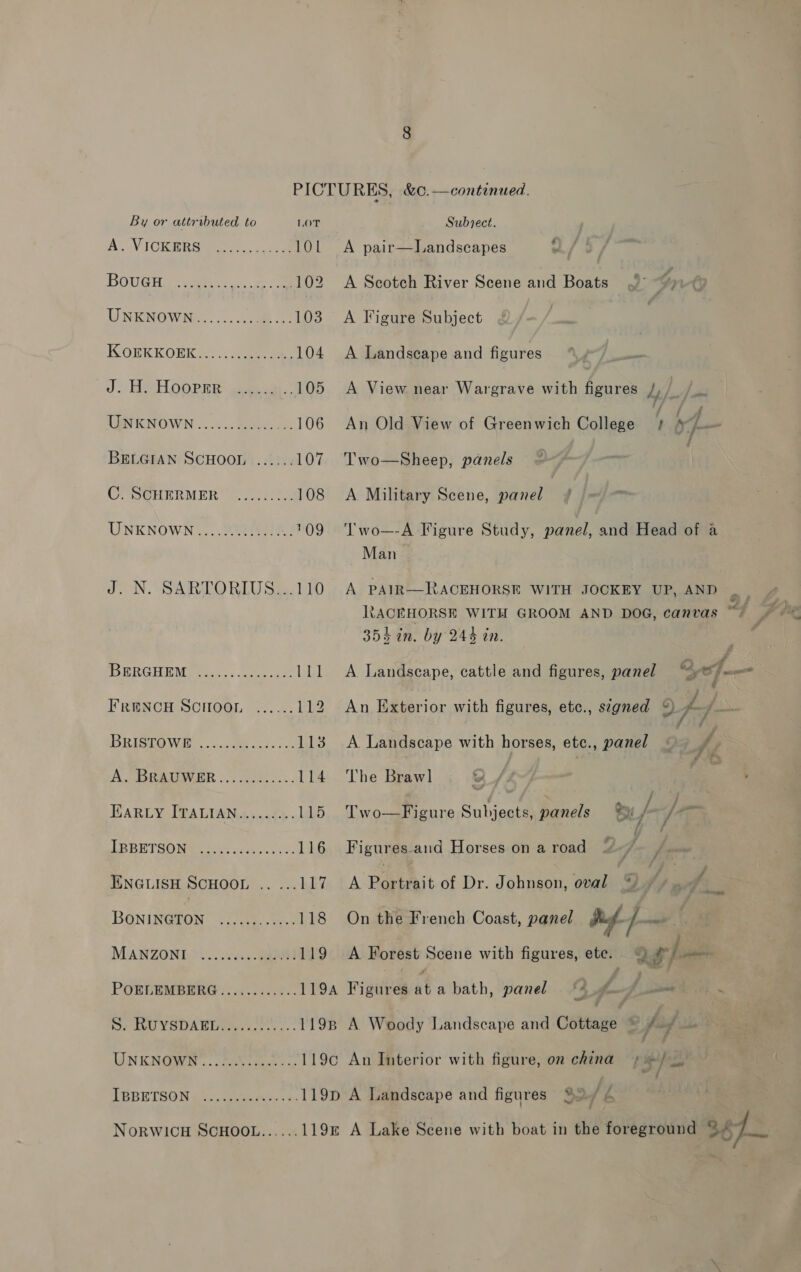 8
PICTURES, &c.—continued.
By or attributed to LOT Subject.
A. VICKERS ............ 101 A pair—Landscapes
BOUGH .................... 102 A Scotch River Scene and Boats
UNKNOWN............... 103 A Figure Subject
KOEKKOEK............... 104 A Landscape and figures
J. H. HOOPER ......... 105 A View near Wargrave with figures
UNKNOWN............... 106 An Old View of Greenwich College
BELGIAN SCHOOL ...... 107 Two—Sheep, panels
C. SCHERMER ......... 108 A Military Scene, panel
UNKNOWN............... 109 Two—A Figure Study, panel, and Head of a
Man
J. N. SARTORIUS... 110 A PAIR—RACEHORSE WITH JOCKEY UP, AND
RACEHORSE WITH GROOM AND DOG, canvas
35½ in. by 24½ in.
BERGHEM ............... 111 A Landscape, cattle and figures, panel
FRENCH SCHOOL ...... 112 An Exterior with figures, etc., signed
BRISTOWE ............... 113 A Landscape with horses, etc., panel
A. BRAUWER............ 114 The Brawl
EARLY ITALIAN......... 115 Two—Figure Subjects, panels
IBBETSON ............... 116 Figures and Horses on a road
ENGLISH SCHOOL .. ... 117 A Portrait of Dr. Johnson, oval
BONINGTON ............ 118 On the French Coast, panel
MANZONI ............... 119 A Forest Scene with figures, etc.
POELEMBERG............ 119A Figures at a bath, panel
S. RUYSDAEL............ 119B A Woody Landscape and Cottage
UNKNOWN............... 119C An Interior with figure, on china
IBBETSON ............... 119D A Landscape and figures
NORWICH SCHOOL...... 119E A Lake Scene with boat in the foreground